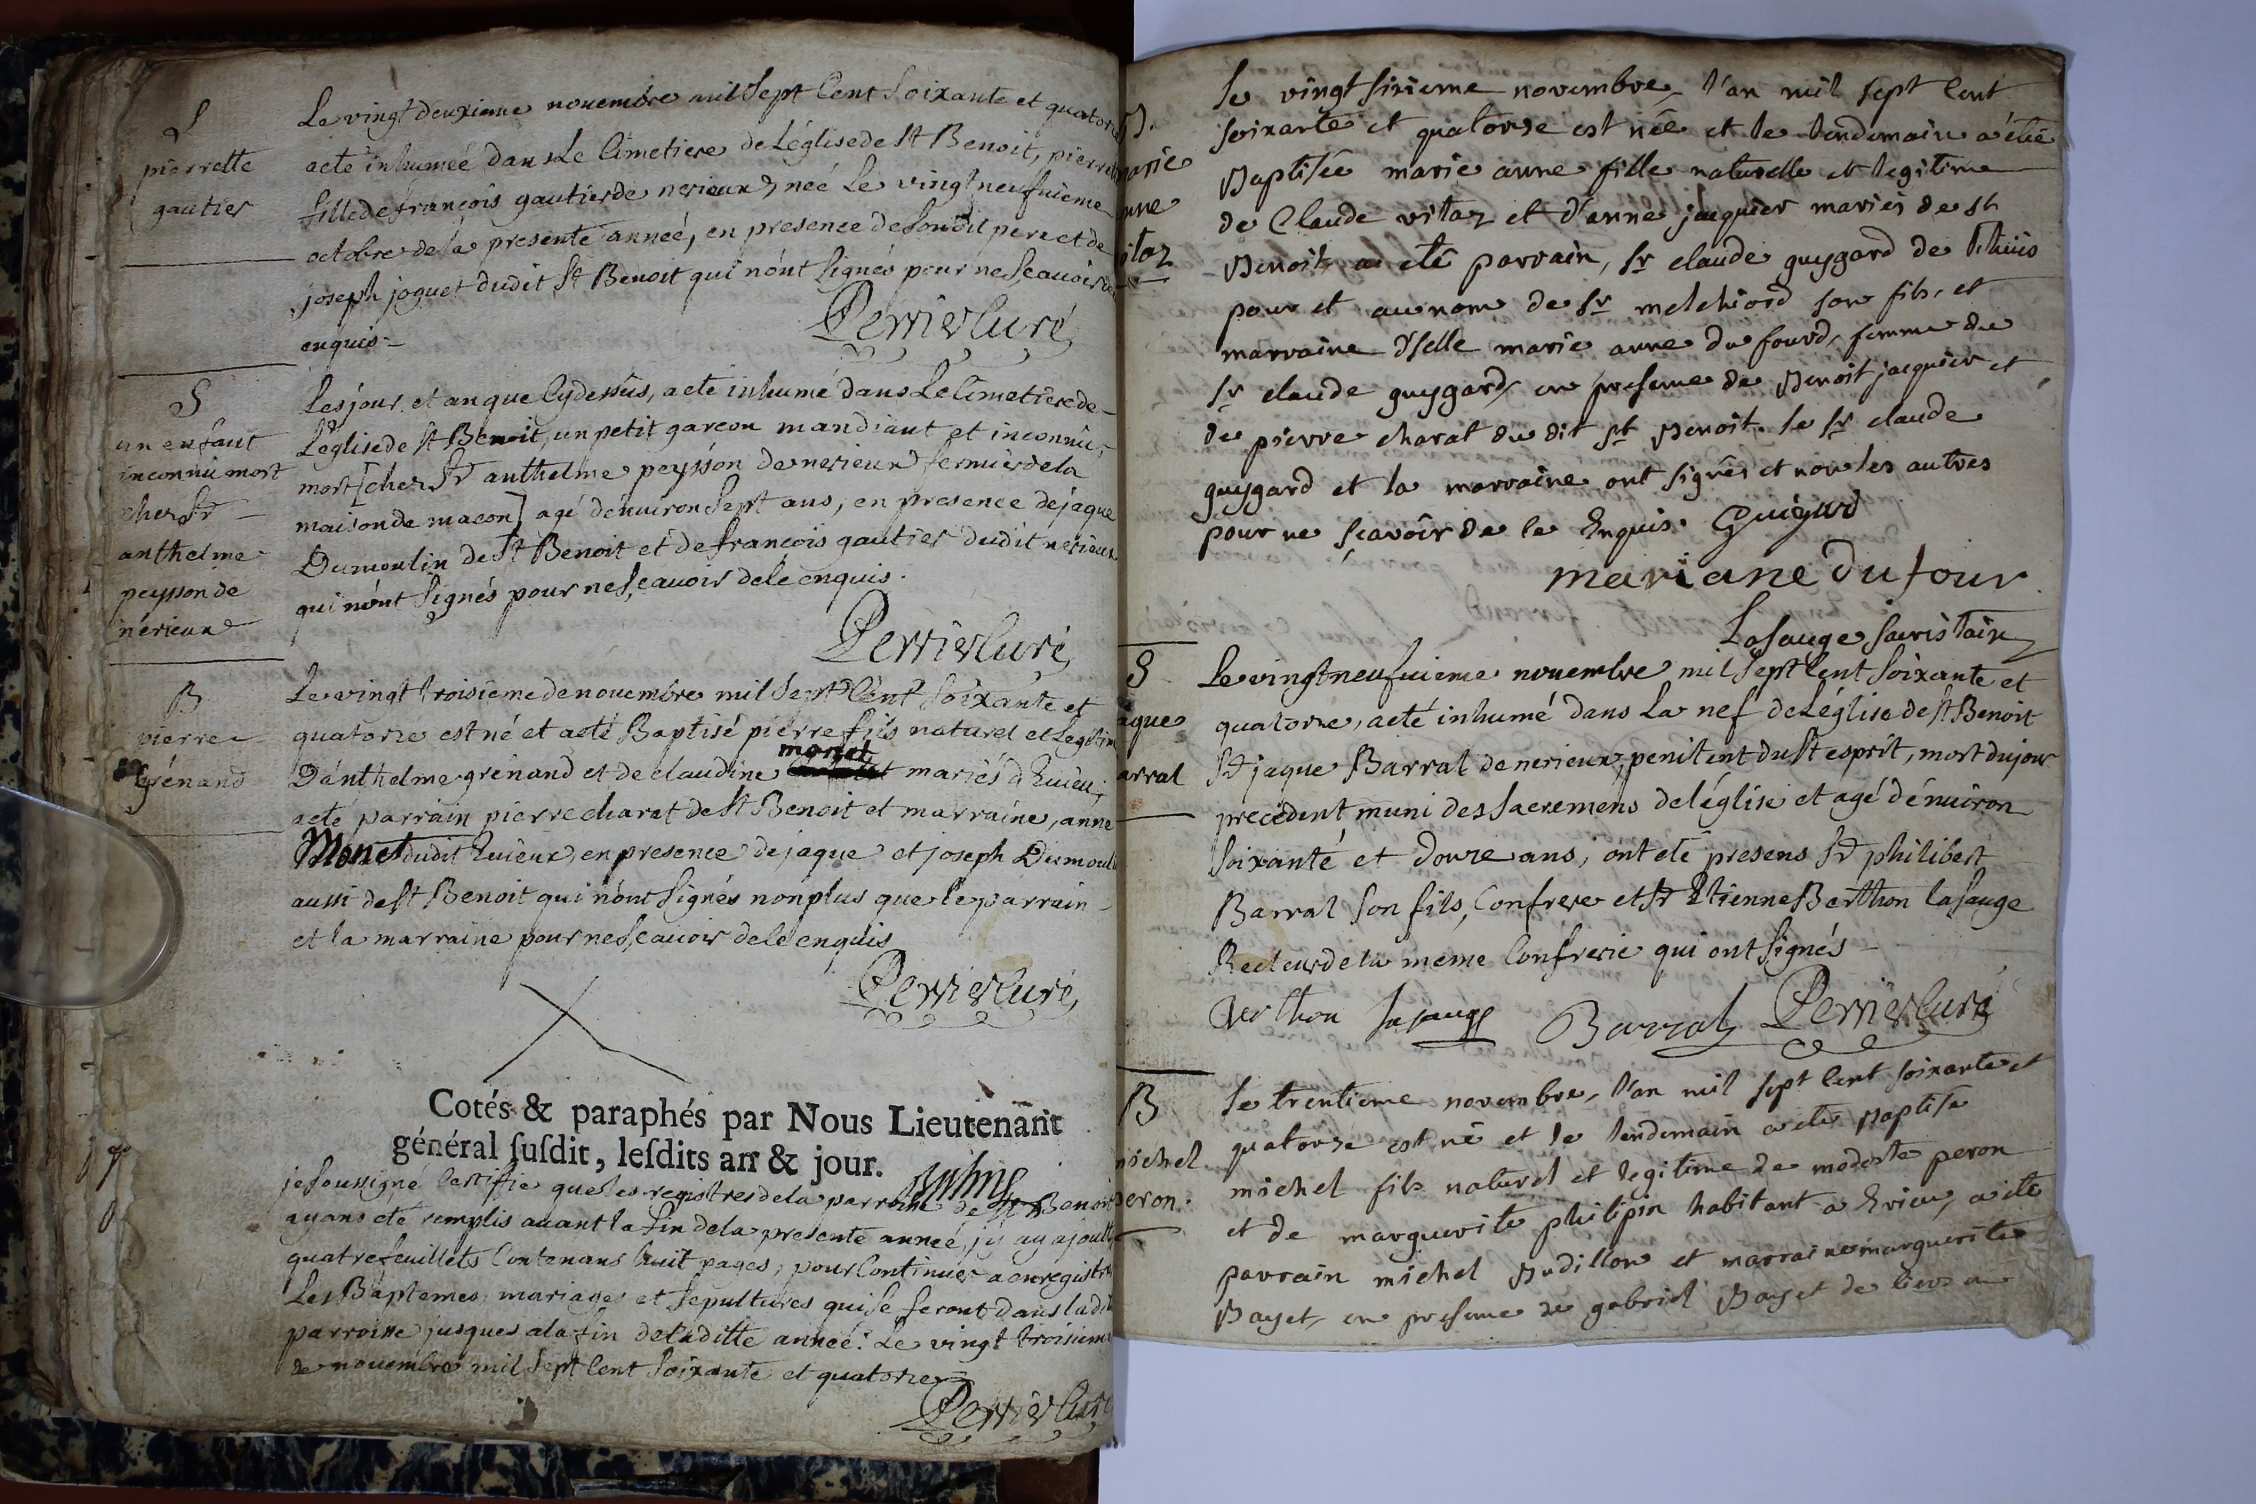 S
pierrette
gautier
Le vingt deuxieme novembre mil sept Cent soixante et quatorze
a eté inhumeé dans Le Cimetiere de L'église de St Benoit, pierrette
fille de françois gautier de nerieux, neé Le vingt neufvieme
octobre de la presente anneé, en presence de son dit pere et de
joseph joguet dudit St Benoit qui n'ont signés pour ne sçavoir de
enquis.
Perrier Curé
S
un enfant
inconnu mort
chez Sr
anthelme
peysson de
nerieux
Les jour et an que Cy dessus, a eté inhumé dans Le Cimetiere de
L'église de St Benoit, un petit garçon mandiant et inconnu,
mort [chez Sr anthelme peysson de nerieux fermier de la
maison de macon] agé d'environ sept ans, en presence de jaque
Dumoulin de St Benoit et de francois gautier dudit nerieux
qui n'ont signés pour ne sçavoir de le enquis.
Perrier Curé
B
pierre
grénand
Le vingt troisieme de novembre mil sept Cent soixante et
quatorze est né et a eté Baptisé pierre fils naturel et Legitime
D'anthelme grénand et de claudine monet mariés d'Evieu,
a eté parrain pierre charat de St Benoit et marraine, anne
Monet dudit Evieux, en presence de jaque et joseph Dumoulin
aussi de St Benoit qui n'ont signés non plus que le parrain
et la marraine pour ne sçavoir de le enquis
Perrier Curé
Cotés & paraphés par Nous Lieutenant
général susdit, lesdits an & jour.
je soussigné Certifie que les registres de la parroisse de St Benoit
ayans eté remplis avant la fin de la presente anneé, j'y ay ajouté
quatre feuillets Contenans huit pages, pour Continuer a enregistrer
Les Baptemes mariages et sepultures qui se feront dans ladite
parroisse jusques a la fin de laditte anneé. Le vingt troisieme
de novembre mil sept Cent soixante et quatorze
Perrier Curé
B.
marie
anne
vitoz
Le vingt sixieme novembre, l'an mil sept Cent
soixante et quatorze est née et le lendemain a été
Baptisée marie anne fille naturelle et legitime
de Claude vitoz et d'anne jaquier mariés de St
Benoit a eté parrain, Sr claude guygard de
pour et au nom de Sr melchiord son fils, et
marraine D'selle marie anne du fourd, femme du
Sr claude guygard, en presence de Benoit jacquier et
de pierre charat du dit St Benoit. Le Sr claude
guygard et la marraine ont signés et non les autres
pour ne sçavoir de le Enquis. Guigard
mariane Dufour
Lasauge sacristain
S
jaque
Barral
Le vingt neufvieme novembre mil sept Cent soixante et
quatorze, a eté inhumé dans La nef de L'église de St Benoit
Sr jaque Barral de nerieux, penitent du St esprit, mort du jour
precedent muni des sacremens de l'église et agé d'environ
soixante et douze ans, ont eté presens Sr philibert
Barral son fils, Confrere et Sr Etienne Berthon lasauge
Recteur de la meme Confrerie qui ont signés
Berthon Lasauge Barral Perrier Curé
B
michel
peron.
Le trentieme novembre, l'an mil sept Cent soixante et
quatorze est né et le lendemain a eté Baptisé
michel fils naturel et legitime de modeste peron
et de marguerite philipin habitant a Evieu, a eté
parrain michel Budillon et marraine marguerite
Bayet, en presence de gabriel Bayet de